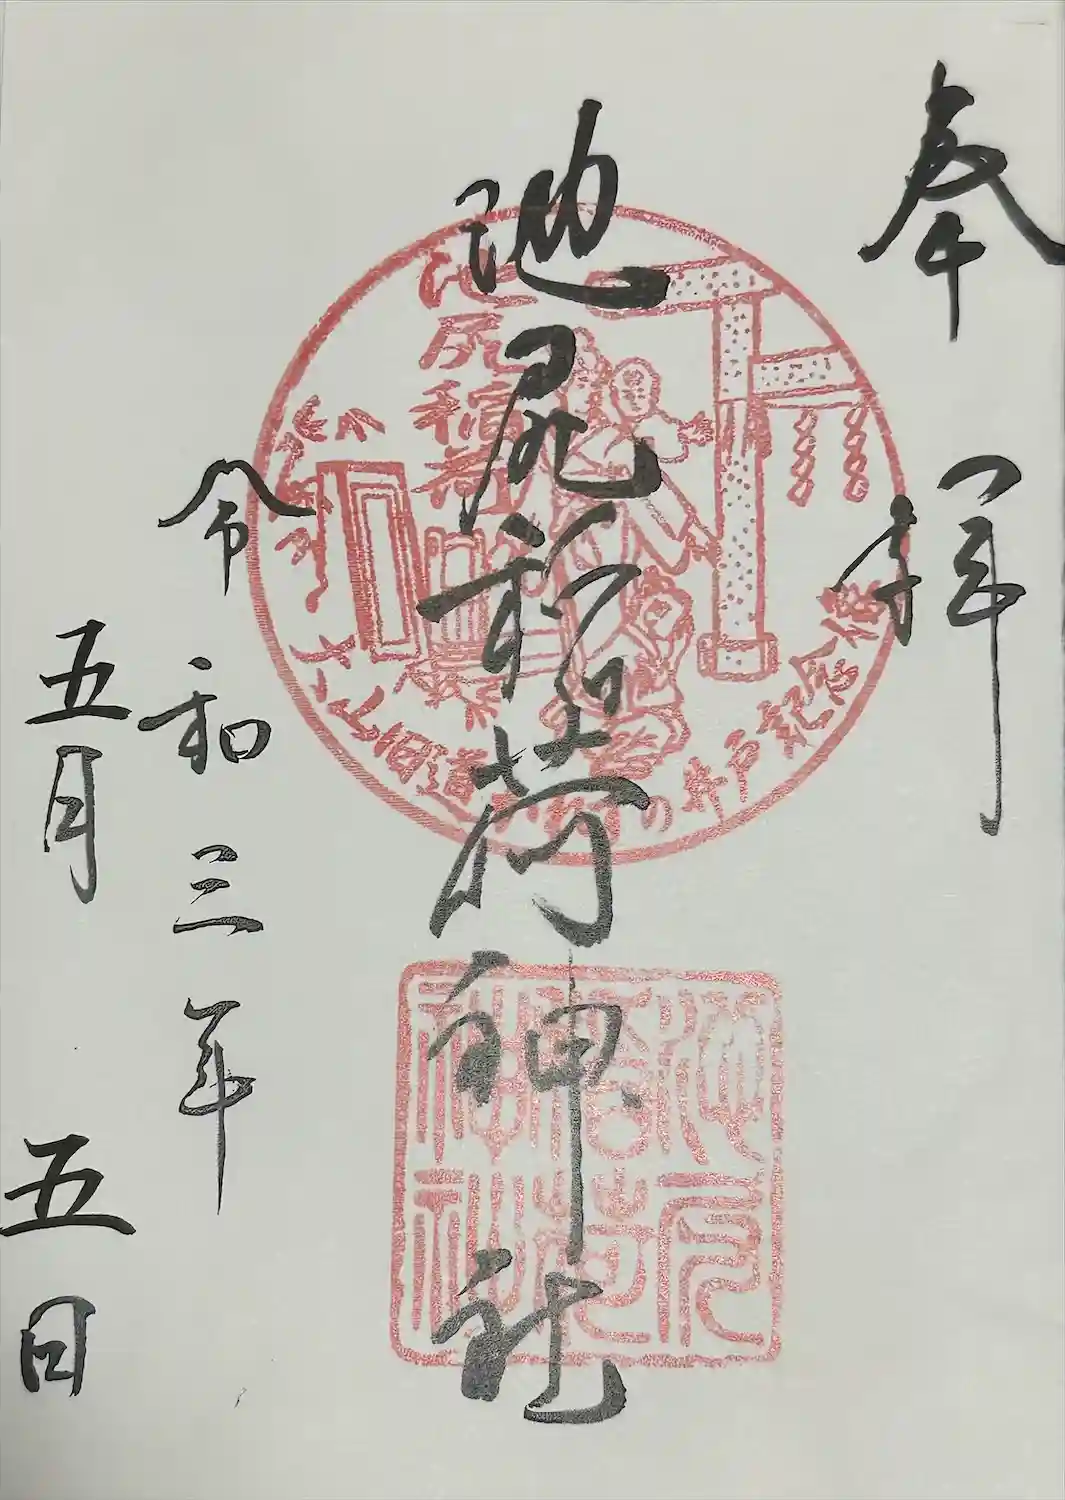 奉拝
池尻稲荷神社
令和三年
五月五日
池尻稲荷
大山旧道
の井戸
池尻
稲荷
神社